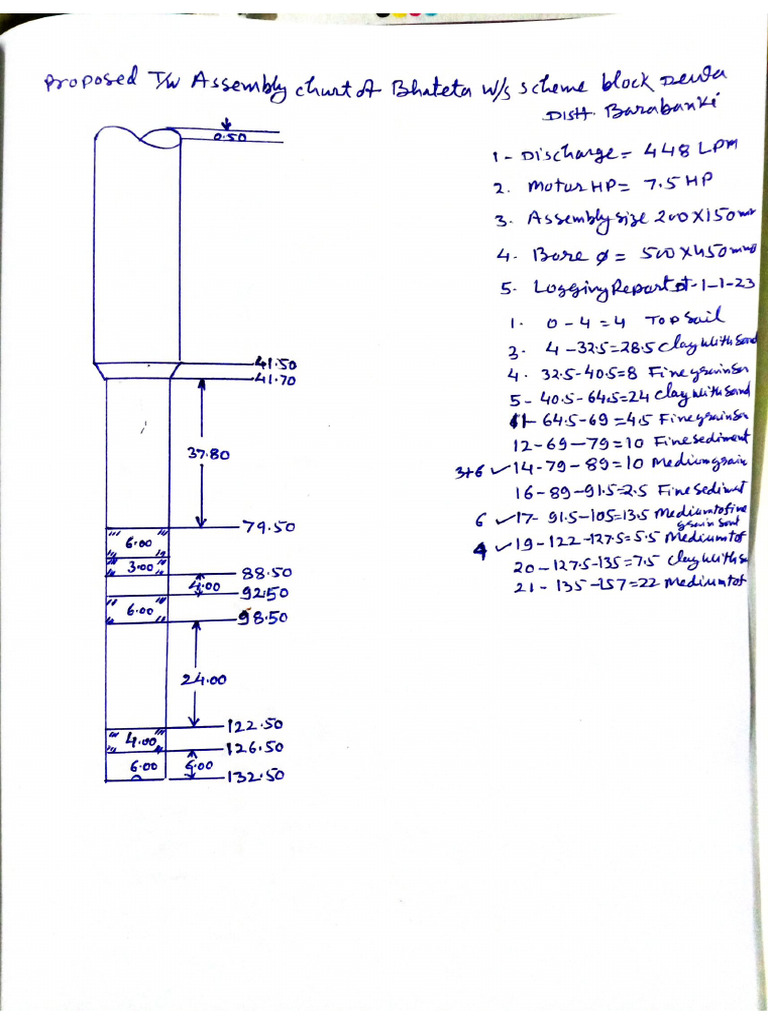 Proposed T/W Assembly chart of Bhateta W/s scheme block Dewa
Distt. Barabanki
0.50
1- Discharge = 448 LPM
2. Motor HP = 7.5 HP
3. Assembly size 200X150mm
4. Bore ø = 500X450mm
5. Logging Report dt-1-1-23
1. 0-4=4 Top Soil
3. 4-32.5=28.5 Clay With Sand
4. 32.5-40.5=8 Fine grain San
5- 40.5-64.5=24 Clay With Sand
11- 64.5-69=4.5 Fine grain San
12-69-79=10 Fine sediment
3+6 ✓14-79-89=10 Medium grain
16-89-91.5=2.5 Fine Sedimet
6 ✓17- 91.5-105=13.5 Medium to fine
grain Sand
4 ✓19-122-127.5=5.5 Medium tof
20-127.5-135=7.5 Clay With Sa
21-135-157=22 Medium tof
41.50
41.70
37.80
79.50
6.00
3.00
88.50
4.00
92.50
6.00
98.50
24.00
122.50
4.00
126.50
6.00 6.00
132.50